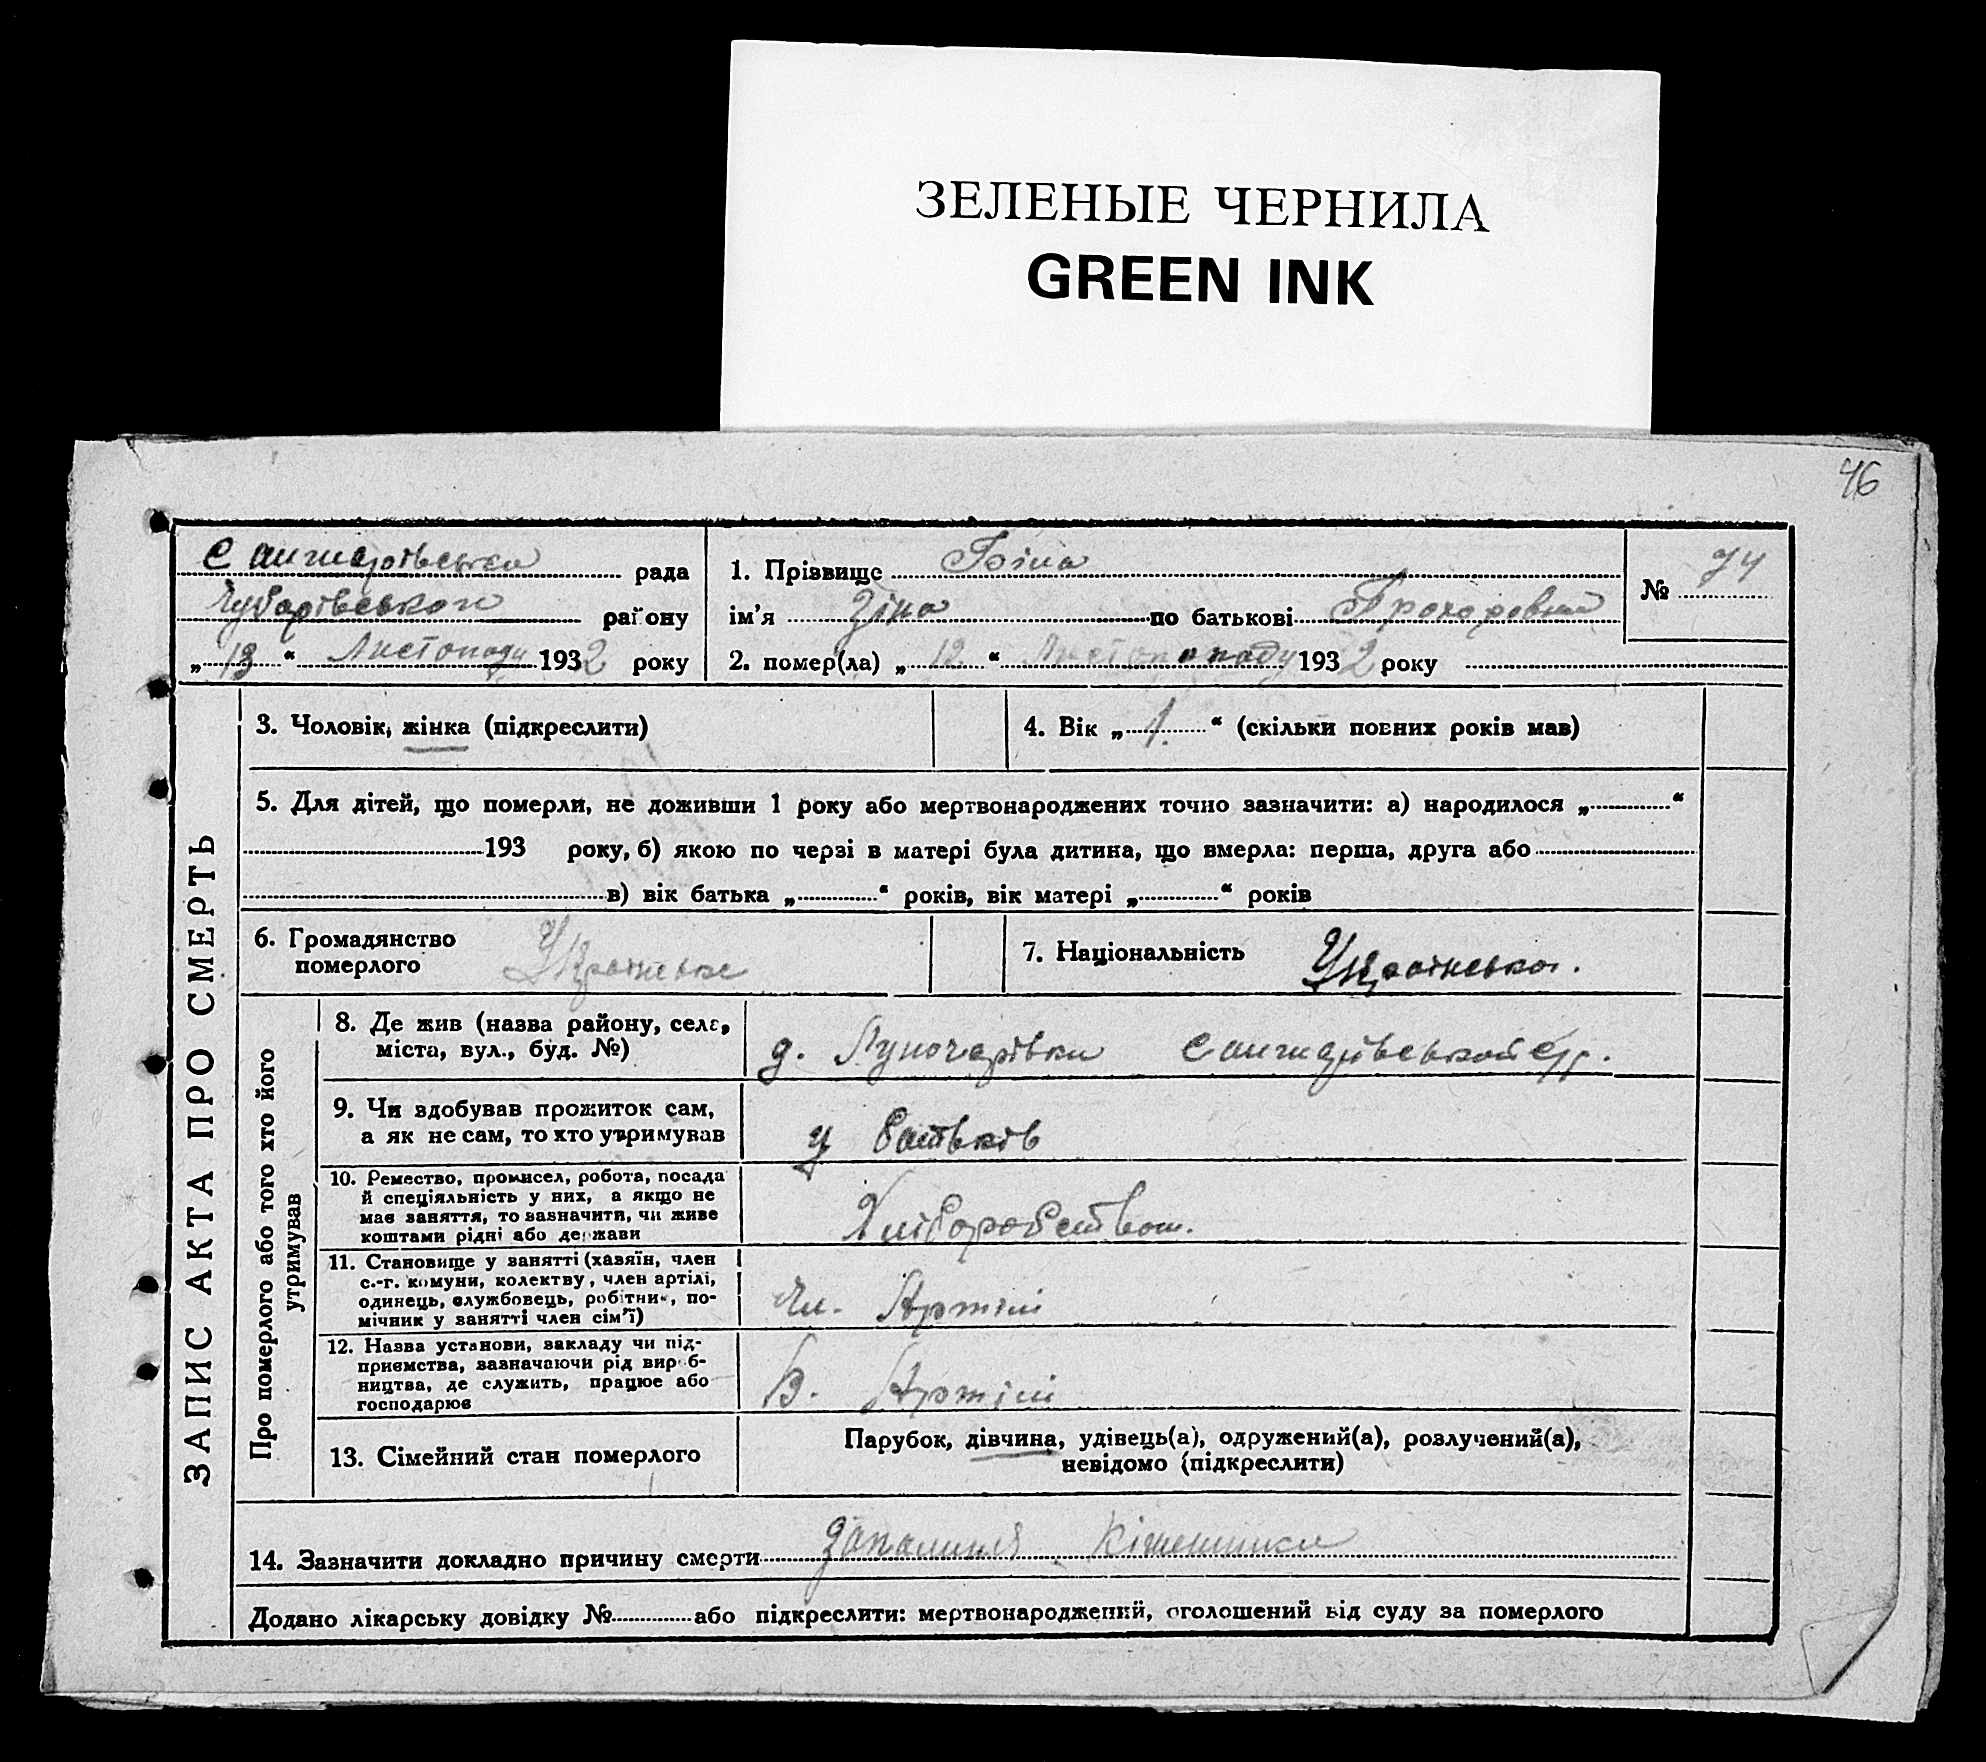 ЗЕЛЕНЫЕ ЧЕРНИЛА
GREEN INK
46
Санжарівська рада
Чубарівського району
„ 13 “ Листопаду 1932 року
1. Прізвище
ім'я Зіна по батькові Прохоровна
2. помер(ла) „ 12 “ Листопопаду 1932 року
№ 74
ЗАПИС АКТА ПРО СМЕРТЬ
3. Чоловік, жінка (підкреслити)
4. Вік „ 1. “ (скільки повних років мав)
5. Для дітей, що померли, не доживши 1 року або мертвонароджених точно зазначити: а) народилося „ “
193 року, б) якою по черзі в матері була дитина, що вмерла: перша, друга або
в) вік батька „ “ років, вік матері „ “ років
6. Громадянство
померлого Українське
7. Національність Українська.
Про померлого або того хто його
утримував
8. Де жив (назва району, села,
міста, вул., буд. №)
д. Луночарівка Санжарівської с/р.
9. Чи здобував прожиток сам,
а як не сам, то хто утримував
у батьків
10. Ремество, промисел, робота, посада
й спеціяльність у них, а якщо не
має заняття, то зазначити, чи живе
коштами рідні або держави
Хліборобством.
11. Становище у занятті (хазяїн, член
с.-г. комуни, колективу, член артілі,
одинець, службовець, робітник, по-
мічник у занятті член сім'ї)
Чл. Артілі
12. Назва установи, закладу чи під-
приємства, зазначаючи рід вироб-
ництва, де служить, працює або
господарює
В. Артілі
13. Сімейний стан померлого
Парубок, дівчина, удівець(а), одружений(а), розлучений(а),
невідомо (підкреслити)
14. Зазначити докладно причину смерти Запалиння Кішешника
Додано лікарську довідку № або підкреслити: мертвонароджений, оголошений від суду за померлого